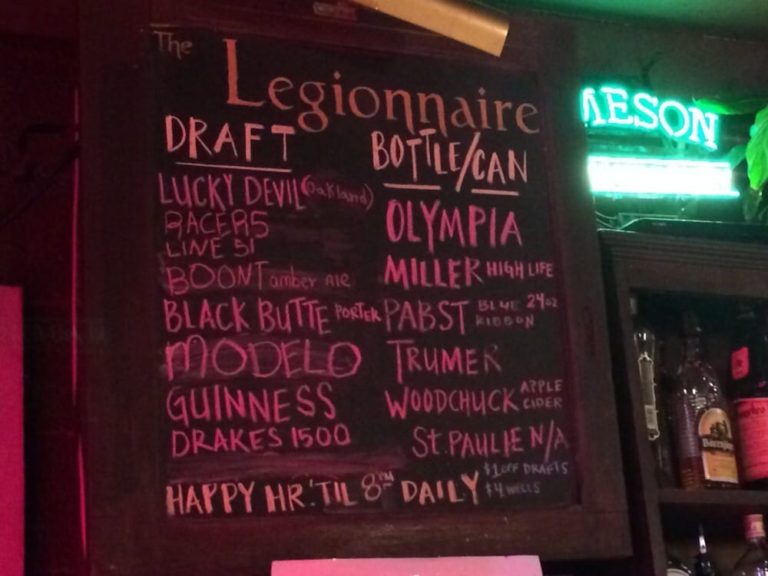 The
Legionnaire
DRAFT
LUCKY DEVIL (Oakland)
RACER5
LINE 51
BOONT amber Ale
BLACK BUTTE PORTER
MODELO
GUINNESS
DRAKES 1500
BOTTLE/CAN
OLYMPIA
MILLER HIGH LIFE
PABST BLUE RIBBON 24oz
TRUMER
WOODCHUCK APPLE CIDER
ST. PAULIE N/A
HAPPY HR. 'TIL 8PM DAILY
$1 OFF DRAFTS
$4 WELLS
MESON